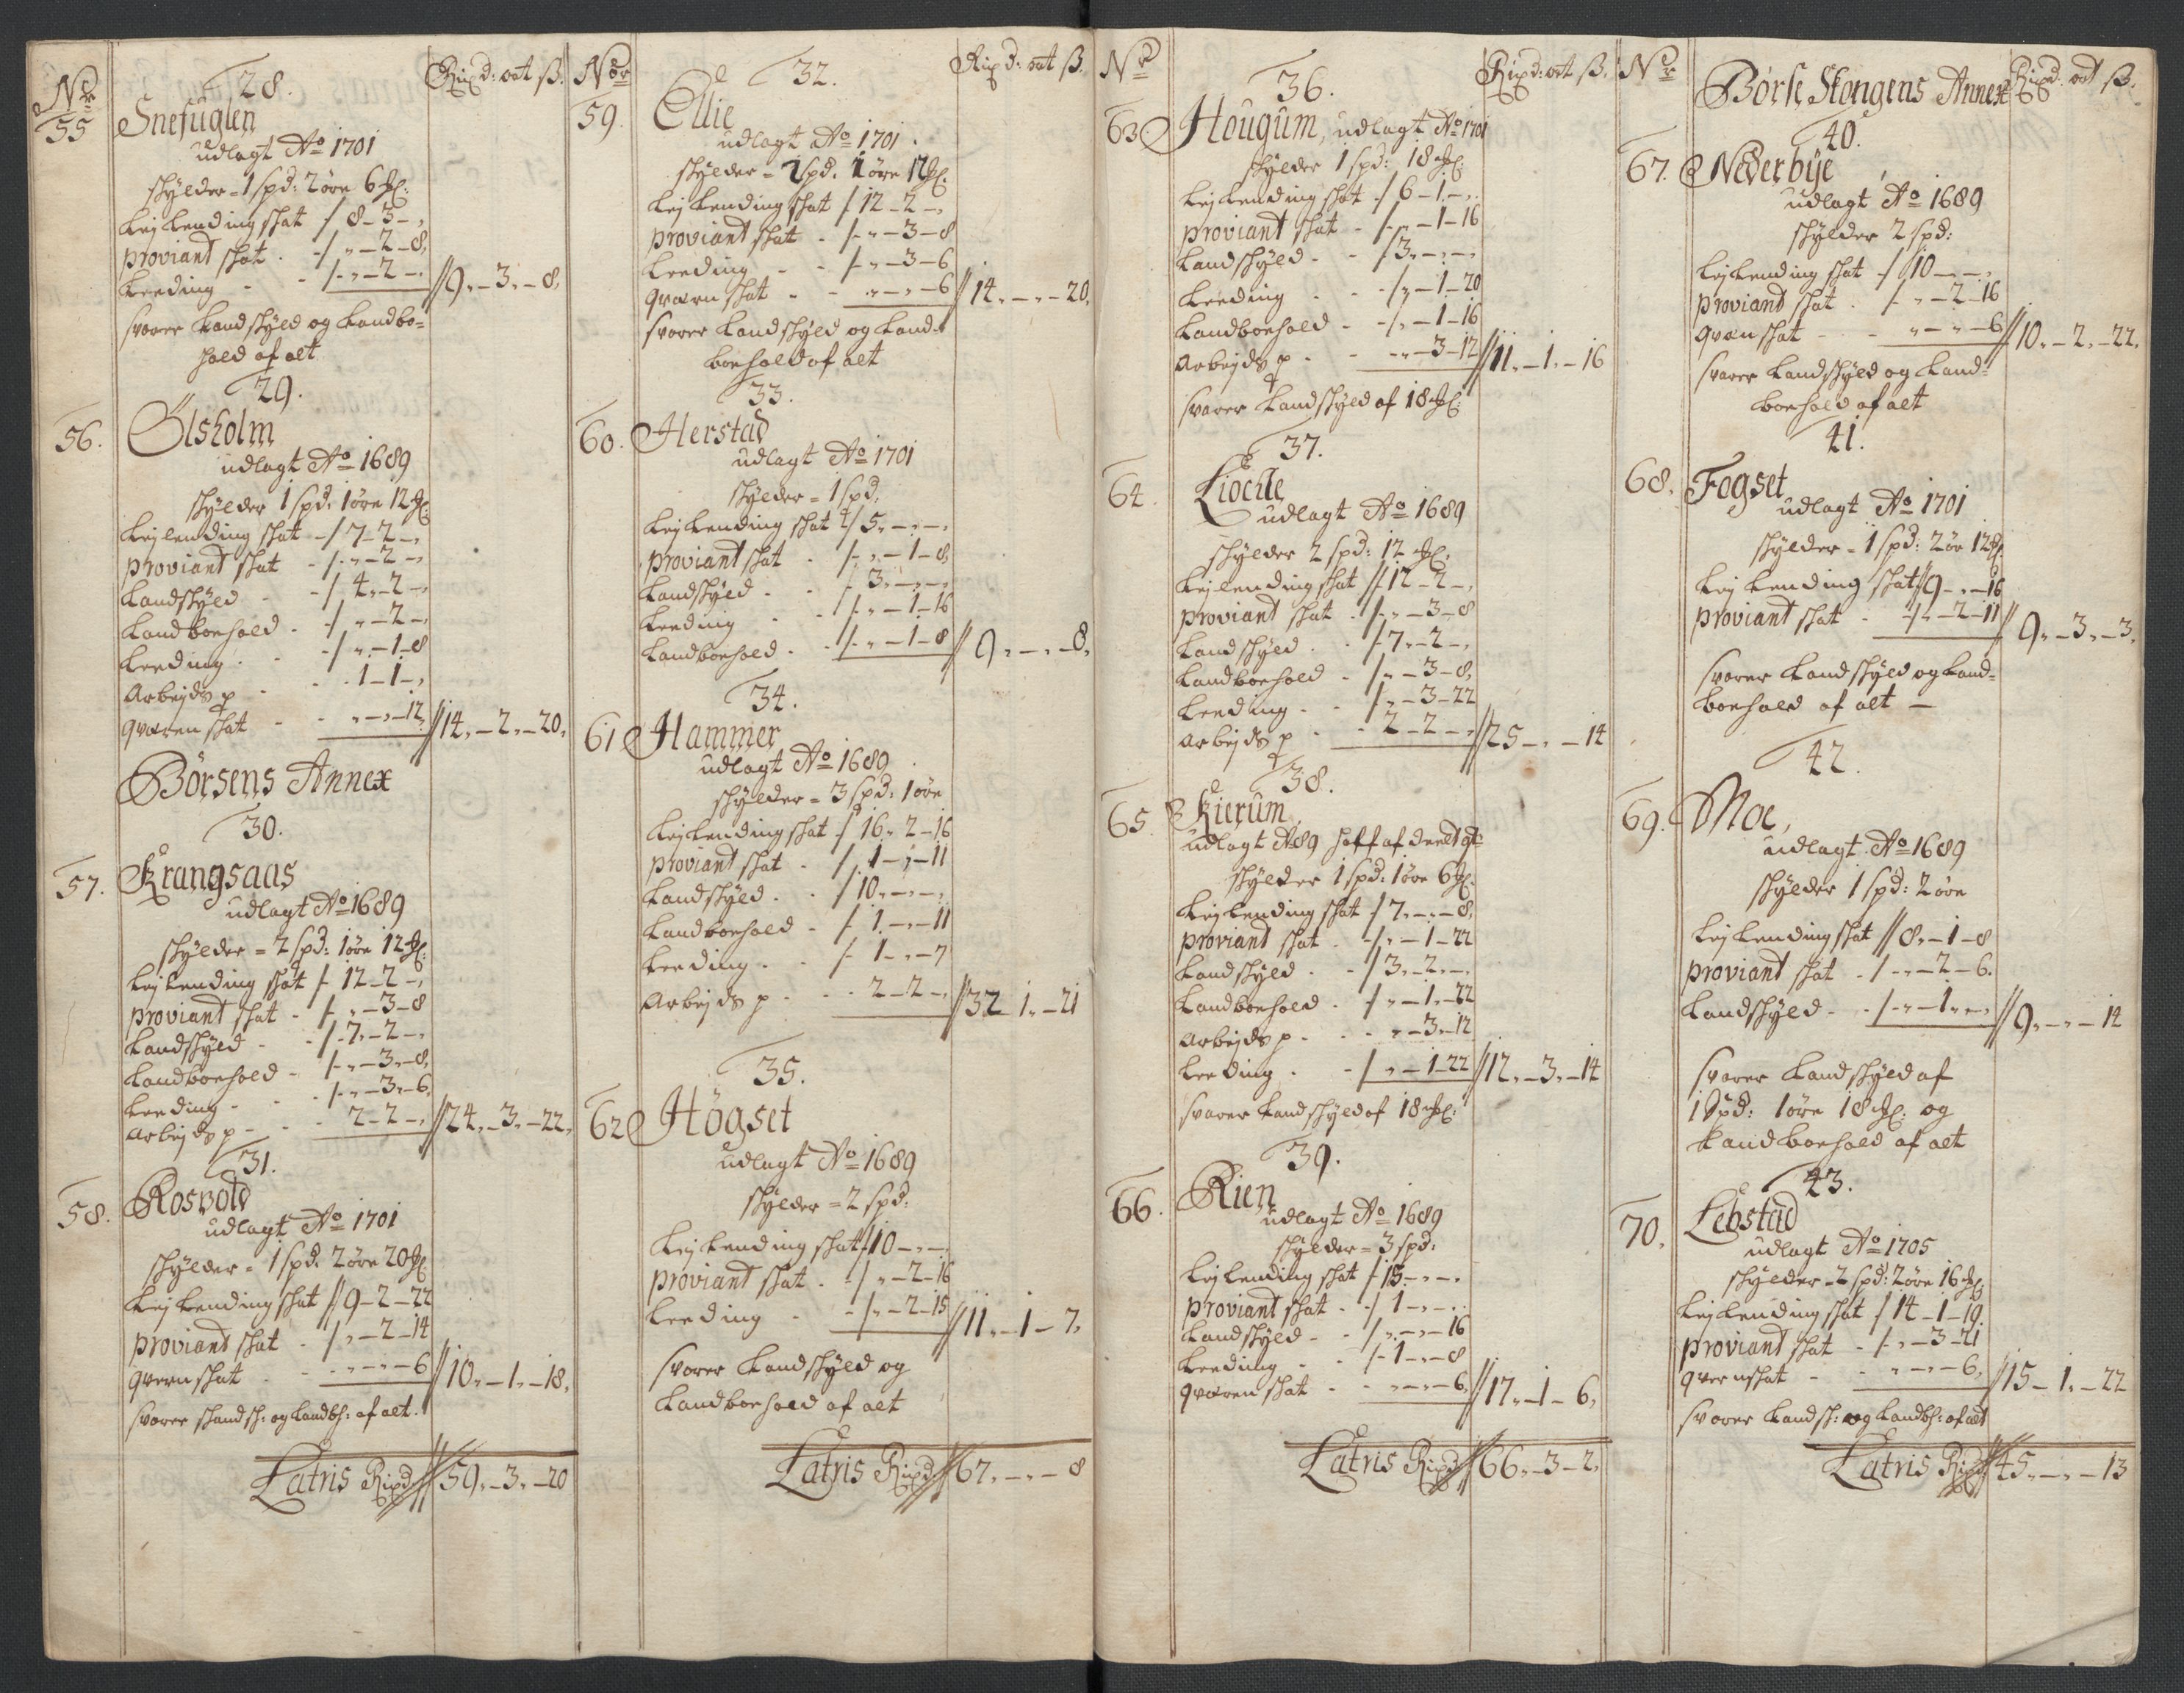 Nr
28.
Rixd: ort ß.
55
Snefuglen
udlagt Ao 1701
skylder = 1 spd: 2 øre 6 Ml:
Leylending skat / 8 - 3 - ,
proviant skat . - / " - 2 - 8,
Leeding - - / - " - 2 - . // 9, - 3, - 8,
svarer Landskyld og Landbo=
hold af alt
29.
56.
Ølsholm
udlagt Ao 1689
skylder 1 spd: 1 øre 12 Ml
Leylending skat - / 7 - 2 - ,
proviant skat - / - " - 2 - ,
Landskyld - - / 4, - 2 - ,
Landboehold - / - " - 2 - ,
Leeding . - / - " - 1 - 8
Arbejds p - . 1 - 1 - ,
qværen skat - - " - " - 12, // 14, - 2, - 20,
Børsens Annex
30.
57.
Krangsaas
udlagt Ao 1689
skylder = 2 spd: 1 øre 12 Ml:
Leylending skat / 12 - 2 - ,
proviant skat - / - , - 3 - 8
Landskyld - - / - 7, - 2 - ,
Landboehold - / - " - 3, - 8,
Leeding - - / - " - 3, - 6,
Arbejds p - - 2 - 2 - , // 24, - 3, - 22,
31.
58.
Rosvold
udlagt Ao 1701
skylder = 1 spd. 2 øre 20 Ml
Leylending skat // 9 - 2 - 22
proviant skat - / " - 2 - 14
qvern skat - - " - " - 6 // 10, - 1, - 18,
svarer skandsk: og Landbh: af alt.
Latris Rixd // 59, - 3, - 20
Nor
32.
Rixd: ort ß.
59.
Ellie
udlagt Ao 1701.
skylder = 2 spd. 1 øre 12 Ml.
Leylending skat / 12 - 2 - ,
proviant skat - / - " - 3 - 8
Leeding - - / - " - 3 - 6
qværn skat - - " - " - 6 // 14, - " - 20,
svarer Landskyld og Land=
boehold af alt
33.
60.
Herstad
udlagt Ao 1701
skylder = 1 spd,
Leylending skat / 5, - " - ,
proviant skat - / - " - 1 - 8,
Landskyld - - / 3, - " - ,
Leeding - - / - " - 1 - 16
Landboehold - - / - " - 1 - 8 // 9, - " - 8,
34.
61
Hammer
udlagt Ao 1689
skylder = 3 spd: 1 øre
Leylending skat / 16, 2 - 16
proviant skat - / 1 - , - 11
Landskyld - - / 10, - " - ,
Landboehold - / 1 - " - 11
Leeding - - / 1 - " - 7
Arbejds p - - 2 - 2 - , // 32 1, - 21
35.
62
Høgset
udlagt Ao 1689
skylder = 2 spd:
Leylending skat / 10 - " - ,
proviant skat - - / " - 2 - 16
Leeding - - / - " - 2 - 15 // 11, - 1 - 7,
svarer Landskyld og
Landboehold af alt
Latris Rixd // 67, - " - 8
Nr
36.
Rixd: ort ß.
63
Hougum, udlagt Ao 1701
skylder 1 spd: 18 Ml:
Leylending skat / 6 - 1 - ,
proviant skat - / - " - 1 - 16
Landskyld - - / 3, - " - ,
Leeding - - / " - 1 - 20
Landboehold - - / " - 1 - 16
Arbejds p - - " - 3 - 12 // 11, - 1, - 16
svarer Landskyld af 18 Ml:
37.
64
Liochle
udlagt Ao 1689
skylder 2 spd: 12 Ml,
Leylending skat // 12 - 2 - ,
proviant skat - / - " - 3 - 8
Landskyld - - / 7, - 2 - ,
Landboehold - / - " - 3 - 8,
Leeding - - / - " - 3 - 22
Arbejds p - - 2 - 2 - , // 25 - , - 14
38.
65
Kierum
udlagt Ao 89
skylder 1 spd: 1 øre 6 Ml.
Leylending skat / 7, - " - 8,
proviant skat - - / " - 1 - 22
Landskyld - - / 3, - 2, - ,
Landboehold - / - " - 1, - 22
Arbejds p - - " - 3, - 12
Leeding - - / " - 1 - 22 // 12, - 3, - 14
svarer Landskyld af 18 Ml:
39.
66.
Rien
udlagt Ao 1689
skylder = 3 spd:
Leylending skat / 15, - " - ,
proviant skat - - / 1 - , - ,
Landskyld - - / " - " - 16
Leeding - - / 1 - " - 8
qværen skat - - " - " - 6, // 17, - 1 - 6,
Latris Rixd // 66, - 3 - 2,
Nr
Børse Skongens Annex
Rixd: ort ß.
40.
67.
Nederbÿe
udlagt Ao 1689
skylder 2 spd:
Leylending skat / 10 - " - ,
proviant skat - / - " - 2 - 16
qværn skat - - " - " - 6 // 10, - 2, - 22,
svarer Landskyld og Land=
boehold af alt
41.
68.
Fogset
udlagt Ao 1701
skylder = 1 spd: 2 ør 12 Ml
Leylending skat // 9 - " - 16
proviant skat - - / " - 2 - 11 // 9, - 3, - 3,
svarer Landskyld og Land=
boehold af alt -
42.
69.
Moe,
udlagt Ao 1689
skylder 1 spd: 2 øre
Leylending skat // 8, - 1 - 8
proviant skat - / - " - 2 - 6.
Landskyld - - / - " - 1 - " // 9, - " - 14
svarer Landskyld af
1 Spd: 1 øre 18 Ml. og
Landboehold af alt
43.
70.
Lebstad
udlagt Ao 1705
skylder = 2 spd: 2 øre 16 Ml.
Leylending skat / 14 - 1 - 19
proviant skat - / - " - 3 - 21
qvernskat - - " - " - 6, // 15 - 1, - 22
svarer Landsk: og Landbh: af alt
Latris Rixd // 45, - " - 13